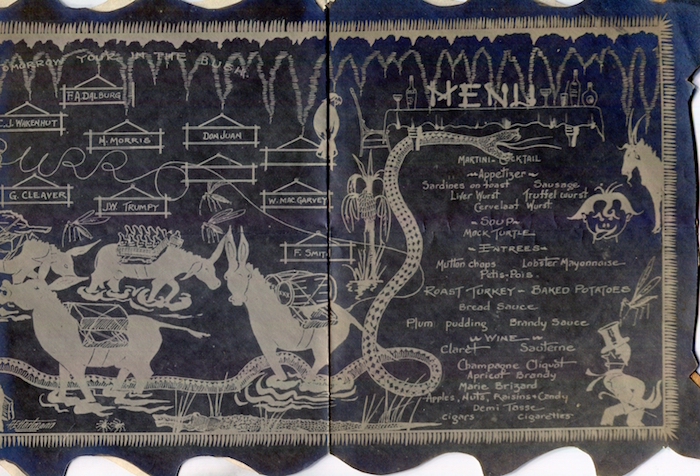 TOMORROW YOUR IN THE BUSH.
F. A. DALBURG
C. J. WHKENHUT
H. MORRIS
DON JUAN
G. CLEAVER
J.W. TRUMPY
W. MAC GARVEY
F. SMIT
MENU
MARTINI COCKTAIL
Appetizer
Sardines on toast Sausage
Liver Wurst Truffel wurst
Cervelaat Wurst
SOUP
MOCK TURTLE
ENTREES
Mutton chops Lobster Mayonnaise
Petis-Pois
ROAST TURKEY - BAKED POTATOES
Bread Sauce
Plum pudding Brandy Sauce
WINE
Claret Sauterne
Champagne Cliquot
Apricot Brandy
Marie Brizard
Apples, Nuts, Raisins & Candy
Demi Tasse
Cigars Cigarettes